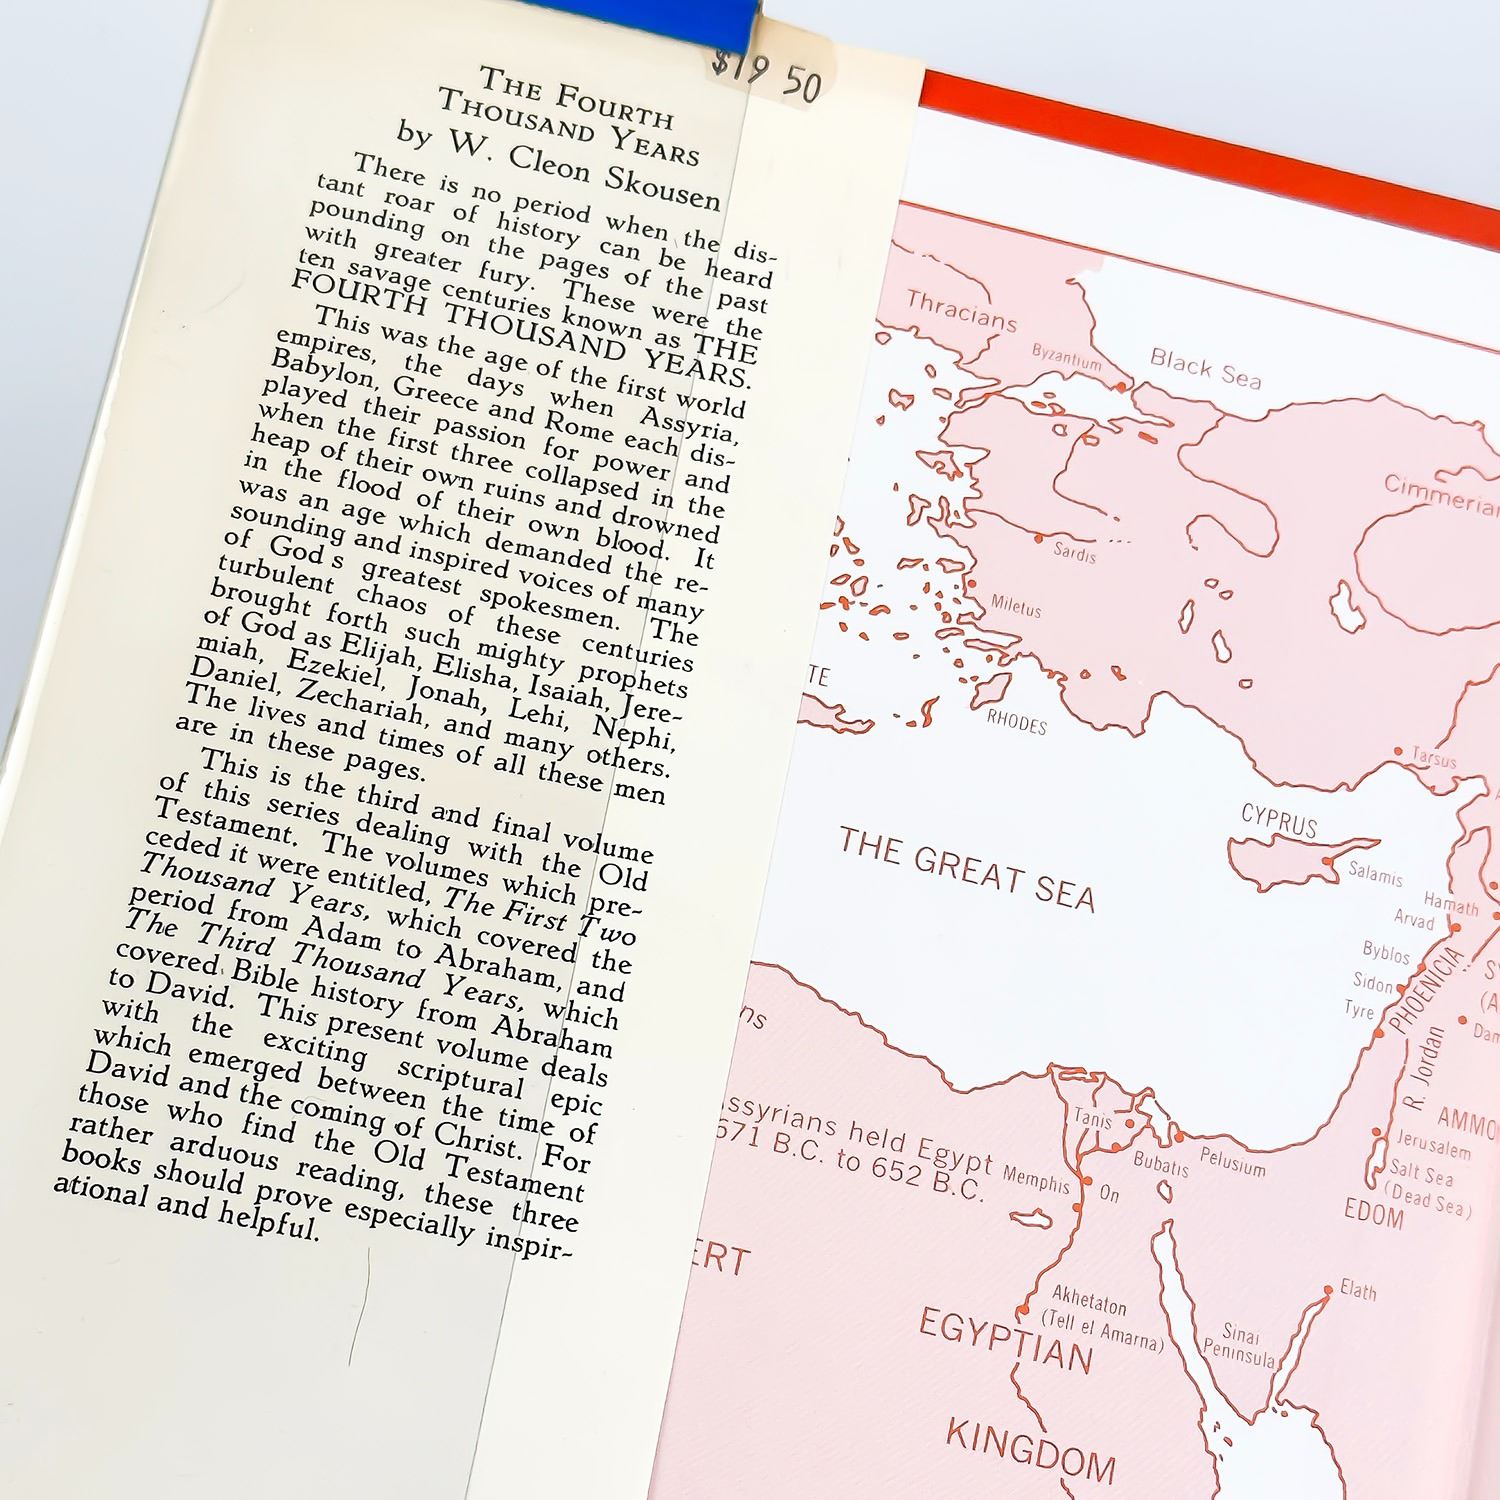 $19 50
THE FOURTH
THOUSAND YEARS
by W. Cleon Skousen
There is no period when the dis-
tant roar of history can be heard
pounding on the pages of the past
with greater fury. These were the
ten savage centuries known as THE
FOURTH THOUSAND YEARS.
This was the age of the first world
empires, the days when Assyria,
Babylon, Greece and Rome each dis-
played their passion for power and
when the first three collapsed in the
heap of their own ruins and drowned
in the flood of their own blood. It
was an age which demanded the re-
sounding and inspired voices of many
of God s greatest spokesmen. The
turbulent chaos of these centuries
brought forth such mighty prophets
of God as Elijah, Elisha, Isaiah, Jere-
miah, Ezekiel, Jonah, Lehi, Nephi,
Daniel, Zechariah, and many others.
The lives and times of all these men
are in these pages.
This is the third and final volume
of this series dealing with the Old
Testament. The volumes which pre-
ceded it were entitled, The First Two
Thousand Years, which covered the
period from Adam to Abraham, and
The Third Thousand Years, which
covered Bible history from Abraham
to David. This present volume deals
with the exciting scriptural epic
which emerged between the time of
David and the coming of Christ. For
those who find the Old Testament
rather arduous reading, these three
books should prove especially inspir-
ational and helpful.
Thracians
Byzantium
Black Sea
Cimmerian
Sardis
Miletus
TE
RHODES
Tarsus
CYPRUS
THE GREAT SEA
Salamis
Hamath
Arvad
Byblos
Sidon
PHOENICIA
S
(A
Tyre
Dam
ns
R. Jordan
ssyrians held Egypt
671 B.C. to 652 B.C.
Tanis
AMMO
Jerusalem
Bubatis
Pelusium
Salt Sea
(Dead Sea)
Memphis
On
EDOM
ERT
Elath
Akhetaton
(Tell el Amarna)
EGYPTIAN
Sinai
Peninsula
KINGDOM